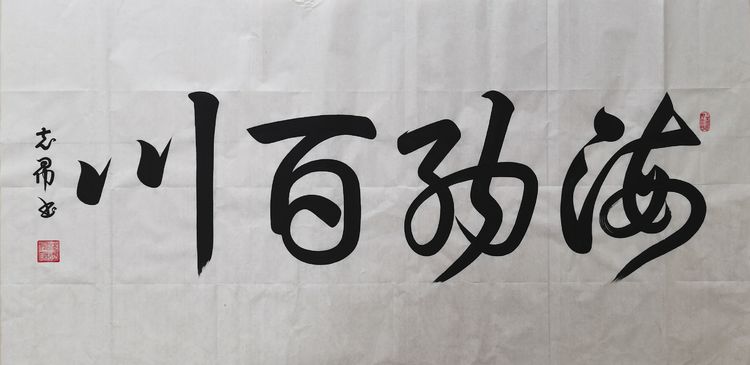 海纳百川
志昂书